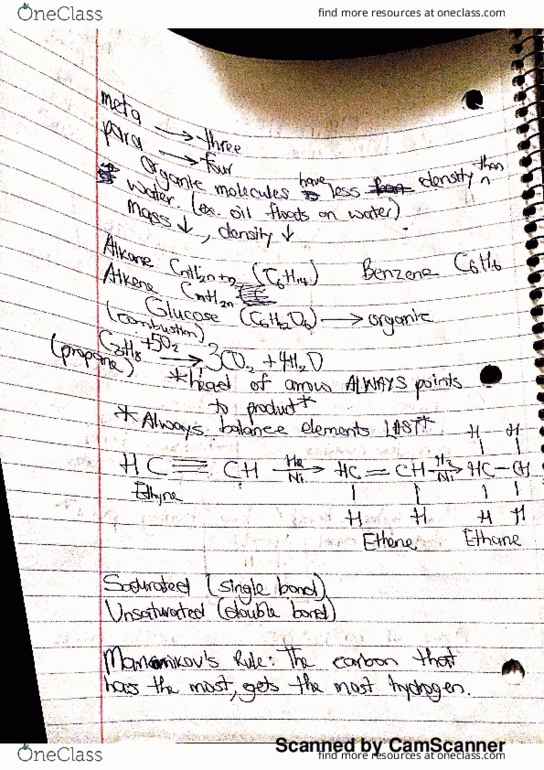 OneClass
find more resources at oneclass.com
meta → three
para → four
Organic molecules have less density than
water. (ex. oil floats on water)
mass ↓, density ↓
Alkane CnH2n+2 (C6H14) Benzene C6H6
Alkene CnH2n
Glucose (C6H12O6) → organic
(combustion)
C3H8 + 5O2 → 3CO2 + 4H2O
(propane)
*head of arrow ALWAYS points
to product*
*Always balance elements LAST*
H H
HC≡CH H2/Ni → HC=CH H2/Ni → HC-CH
Ethyne
H H H H
Ethene Ethane
Saturated (single bond)
Unsaturated (double bond)
Rule: The carbon that
has the most, gets the most hydrogen.
Scanned by CamScanner
OneClass
find more resources at oneclass.com